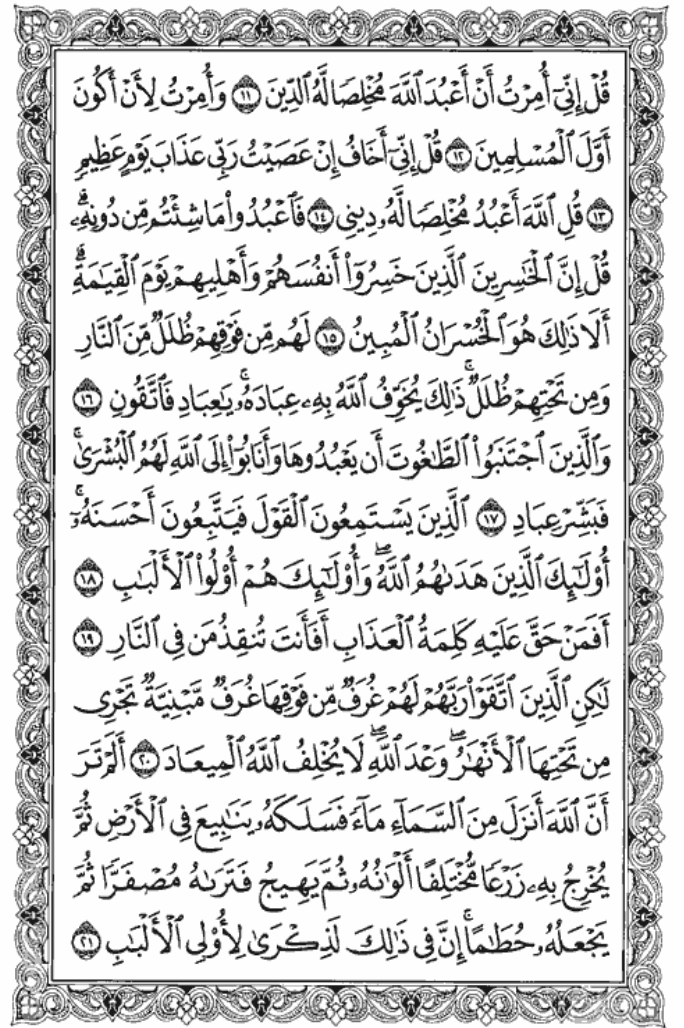 قُلْ إِنِّىٓ أُمِرْتُ أَنْ أَعْبُدَ ٱللَّهَ مُخْلِصًا لَّهُ ٱلدِّينَ ١١ وَأُمِرْتُ لِأَنْ أَكُونَ
أَوَّلَ ٱلْمُسْلِمِينَ ١٢ قُلْ إِنِّىٓ أَخَافُ إِنْ عَصَيْتُ رَبِّى عَذَابَ يَوْمٍ عَظِيمٍ
١٣ قُلِ ٱللَّهَ أَعْبُدُ مُخْلِصًا لَّهُۥ دِينِى ١٤ فَٱعْبُدُوا۟ مَا شِئْتُم مِّن دُونِهِۦ ۗ
قُلْ إِنَّ ٱلْخَٰسِرِينَ ٱلَّذِينَ خَسِرُوٓا۟ أَنفُسَهُمْ وَأَهْلِيهِمْ يَوْمَ ٱلْقِيَٰمَةِ ۗ
أَلَا ذَٰلِكَ هُوَ ٱلْخُسْرَانُ ٱلْمُبِينُ ١٥ لَهُم مِّن فَوْقِهِمْ ظُلَلٌ مِّنَ ٱلنَّارِ
وَمِن تَحْتِهِمْ ظُلَلٌ ۚ ذَٰلِكَ يُخَوِّفُ ٱللَّهُ بِهِۦ عِبَادَهُۥ ۚ يَٰعِبَادِ فَٱتَّقُونِ ١٦
وَٱلَّذِينَ ٱجْتَنَبُوا۟ ٱلطَّٰغُوتَ أَن يَعْبُدُوهَا وَأَنَابُوٓا۟ إِلَى ٱللَّهِ لَهُمُ ٱلْبُشْرَىٰ ۚ
فَبَشِّرْ عِبَادِ ١٧ ٱلَّذِينَ يَسْتَمِعُونَ ٱلْقَوْلَ فَيَتَّبِعُونَ أَحْسَنَهُۥٓ ۚ
أُو۟لَٰٓئِكَ ٱلَّذِينَ هَدَىٰهُمُ ٱللَّهُ ۖ وَأُو۟لَٰٓئِكَ هُمْ أُو۟لُوا۟ ٱلْأَلْبَٰبِ ١٨
أَفَمَنْ حَقَّ عَلَيْهِ كَلِمَةُ ٱلْعَذَابِ أَفَأَنتَ تُنقِذُ مَن فِى ٱلنَّارِ ١٩
لَٰكِنِ ٱلَّذِينَ ٱتَّقَوْا۟ رَبَّهُمْ لَهُمْ غُرَفٌ مِّن فَوْقِهَا غُرَفٌ مَّبْنِيَّةٌ تَجْرِى
مِن تَحْتِهَا ٱلْأَنْهَٰرُ ۖ وَعْدَ ٱللَّهِ ۖ لَا يُخْلِفُ ٱللَّهُ ٱلْمِيعَادَ ٢٠ أَلَمْ تَرَ
أَنَّ ٱللَّهَ أَنزَلَ مِنَ ٱلسَّمَآءِ مَآءً فَسَلَكَهُۥ يَنَٰبِيعَ فِى ٱلْأَرْضِ ثُمَّ
يُخْرِجُ بِهِۦ زَرْعًا مُّخْتَلِفًا أَلْوَٰنُهُۥ ثُمَّ يَهِيجُ فَتَرَىٰهُ مُصْفَرًّا ثُمَّ
يَجْعَلُهُۥ حُطَٰمًا ۚ إِنَّ فِى ذَٰلِكَ لَذِكْرَىٰ لِأُو۟لِى ٱلْأَلْبَٰبِ ٢١